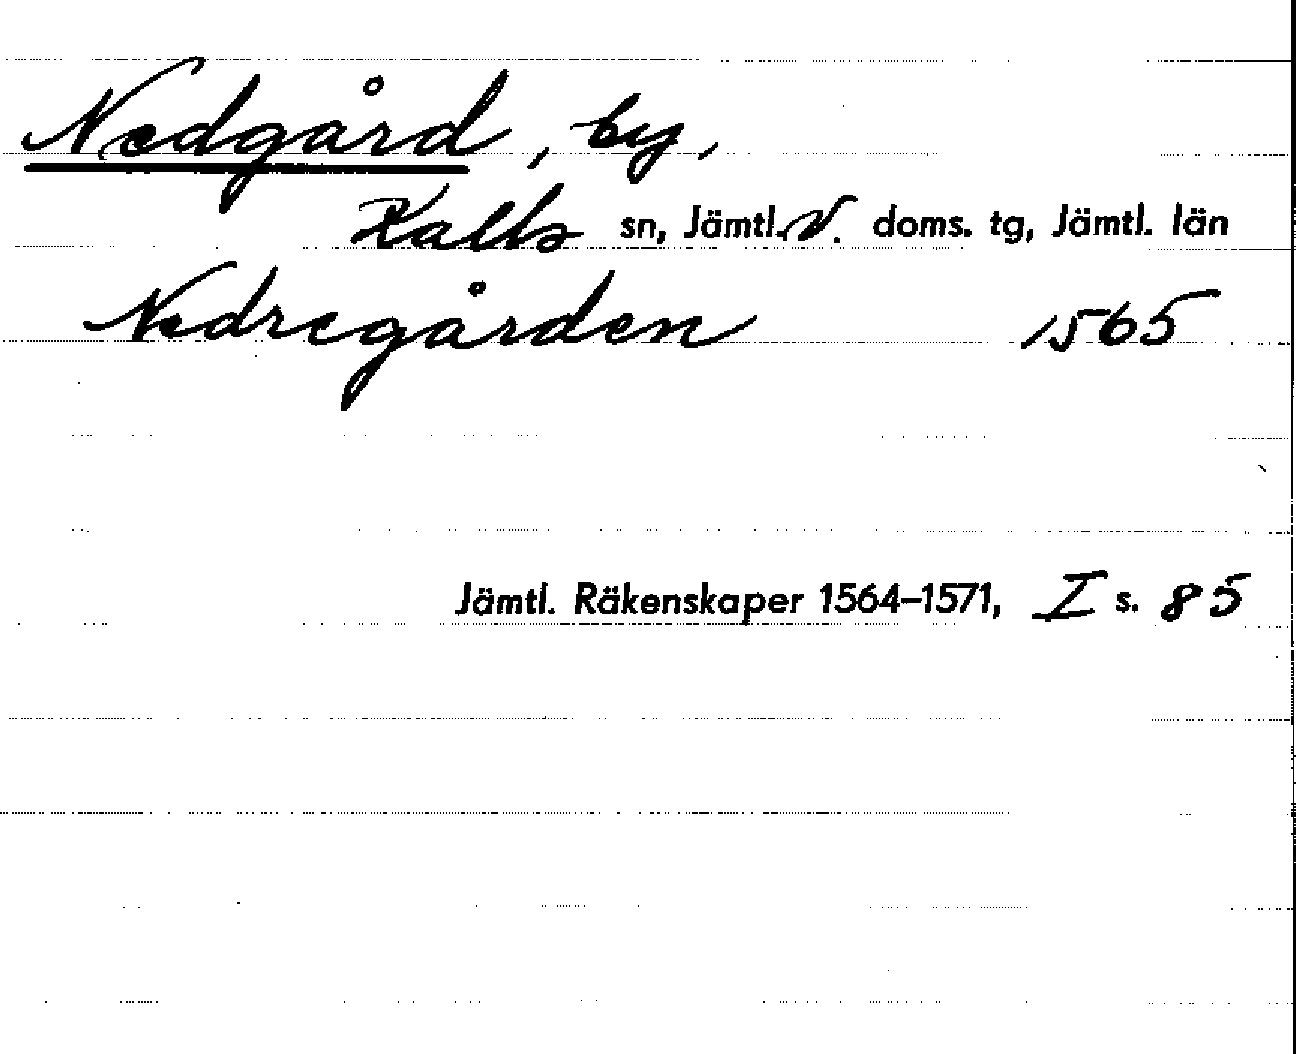 Nedgård, by,
Kalls sn, Jämtl. V. doms. tg, Jämtl. län
Nedregården 1565
Jämtl. Räkenskaper 1564–1571, I s. 85